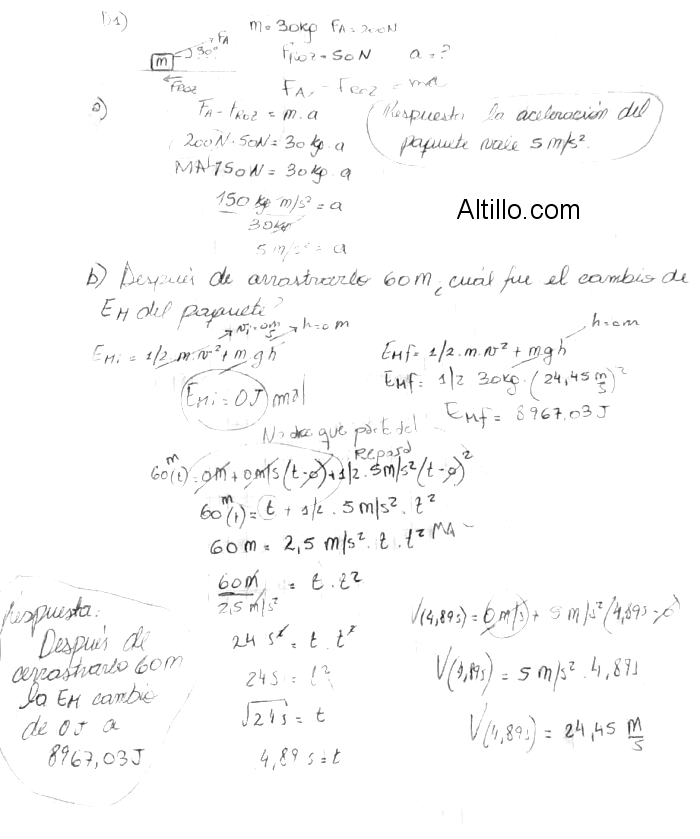 D1)
m = 30kg FA = 200N
FA
30°
m
FROZ
FROZ = 50N a = ?
FA - FROZ = ma
a)
FA - FROZ = m . a
200N - 50N = 30kg . a
150N = 30kg . a
150 kg m/s² = a
30kg
5 m/s² = a
Respuesta la aceleración del
paquete vale 5 m/s².
Altillo.com
b) Después de arrastrarlo 60m ¿cuál fue el cambio de
EM del paquete?
vi = 0 m/s h = 0 m
EMi = 1/2 . m . v² + m g h
EMi = 0J mal
h = 0m
EMf = 1/2 . m . v² + mgh
EMf = 1/2 30kg . (24,45 m/s)²
EMf = 8967,03 J
No dice que parte del
Reposo
60m(t) = 0m + 0m/s (t-0) + 1/2 . 5m/s² (t-0)²
60m(t) = t + 1/2 . 5m/s² . t²
60m = 2,5 m/s² . t . t² MA
60m = t . t²
2,5 m/s²
24 s² = t . t²
24s = t²
√24s = t
4,89 s = t
V(4,89s) = 0m/s + 5 m/s² (4,89s - 0)
V(4,89s) = 5 m/s² . 4,89s
V(4,89s) = 24,45 m/s
Respuesta:
Después de
arrastrarlo 60m
la EM cambio
de 0J a
8967,03J